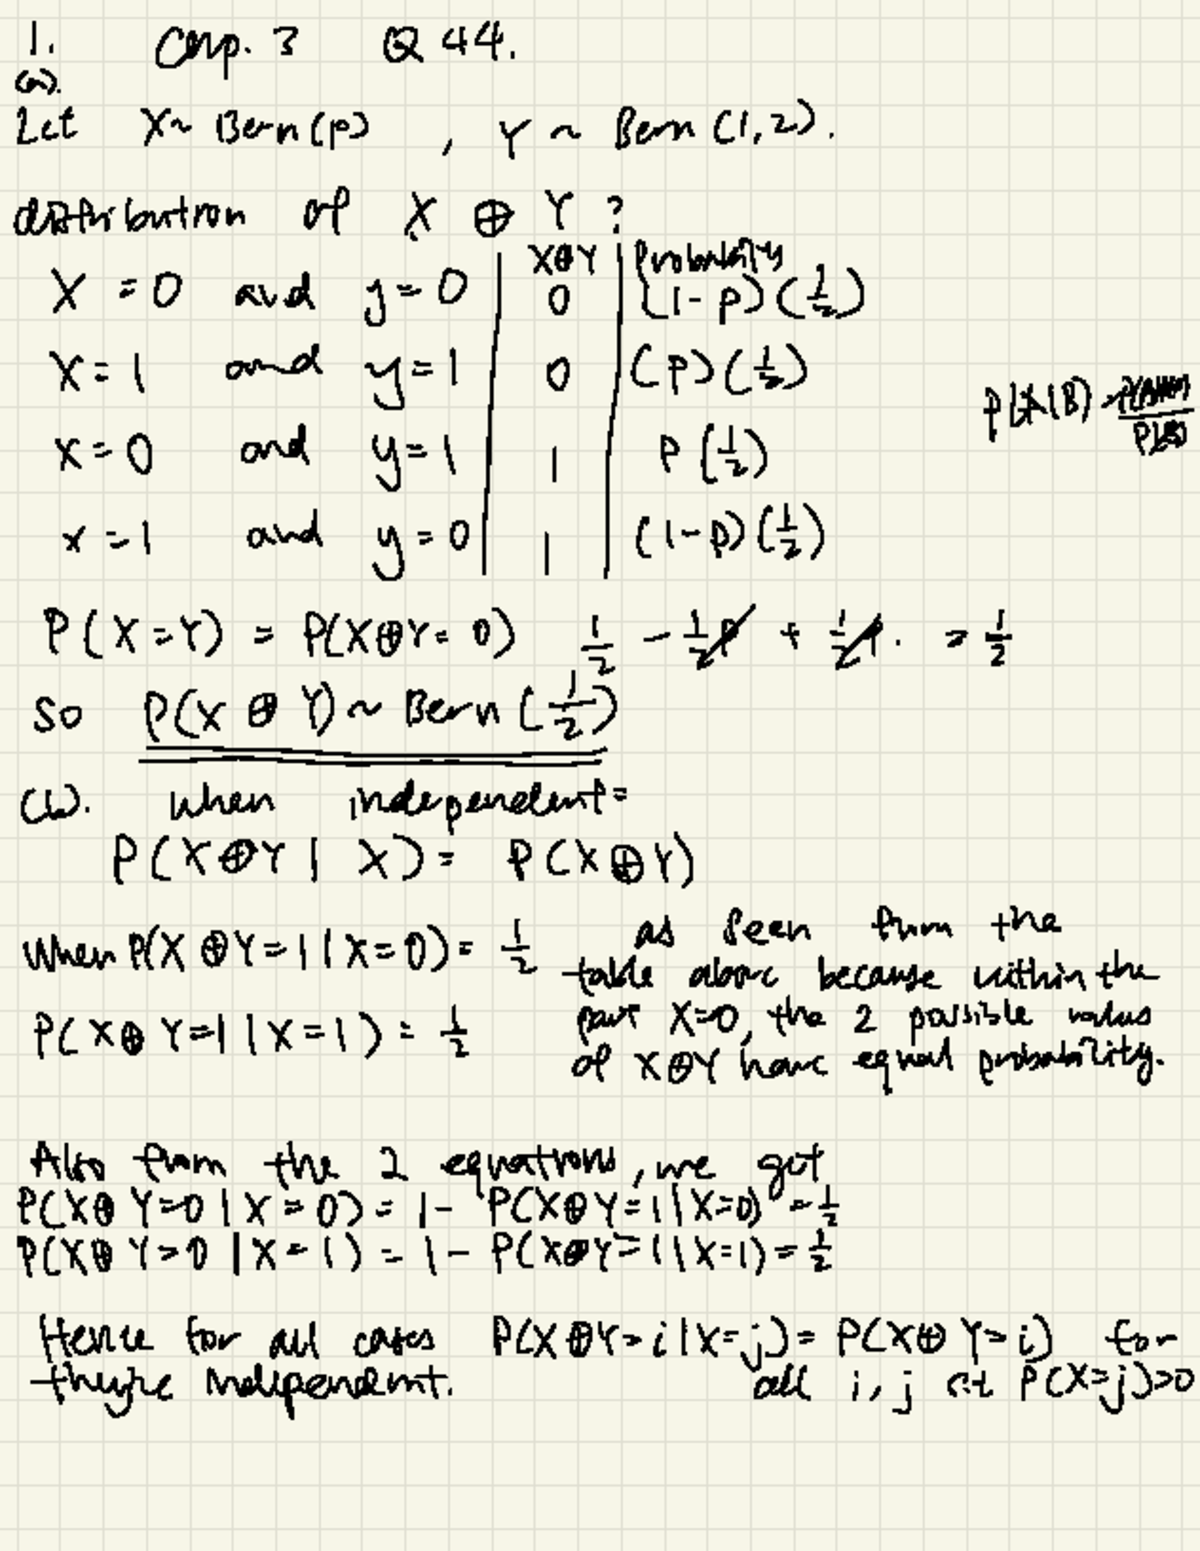 1. Chp. 3 Q 44.
(a).
Let X~ Bern(p) , Y ~ Bern (1,2).
distribution of X ⊕ Y ?
X⊕Y Probability
X = 0 and y = 0 0 (1-p)(1/2)
X = 1 and y = 1 0 (p)(1/2)
X = 0 and y = 1 1 P(1/2)
x = 1 and y = 0 1 (1-p)(1/2)
P(A|B) =
P(X=Y) = P(X⊕Y= 0) 1/2 - 1/2p + 1/2p. = 1/2
So P(X ⊕ Y) ~ Bern (1/2)
(b). When independent=
P(X⊕Y | X) = P(X⊕Y)
When P(X ⊕ Y=1 | X=0) = 1/2 as seen from the
table above because within the
P(X⊕Y=1 | X=1) = 1/2 part X=0, the 2 possible values
of X⊕Y have equal probability.
Also from the 2 equations, we got
P(X⊕Y=0 | X=0) = 1- P(X⊕Y=1|X=0) = 1/2
P(X⊕Y=0 | X=1) = 1- P(X⊕Y=1|X=1) = 1/2
Hence for all cases P(X⊕Y=i|X=j) = P(X⊕Y=i) for
they're independent. all i, j s.t. P(X=j)>0